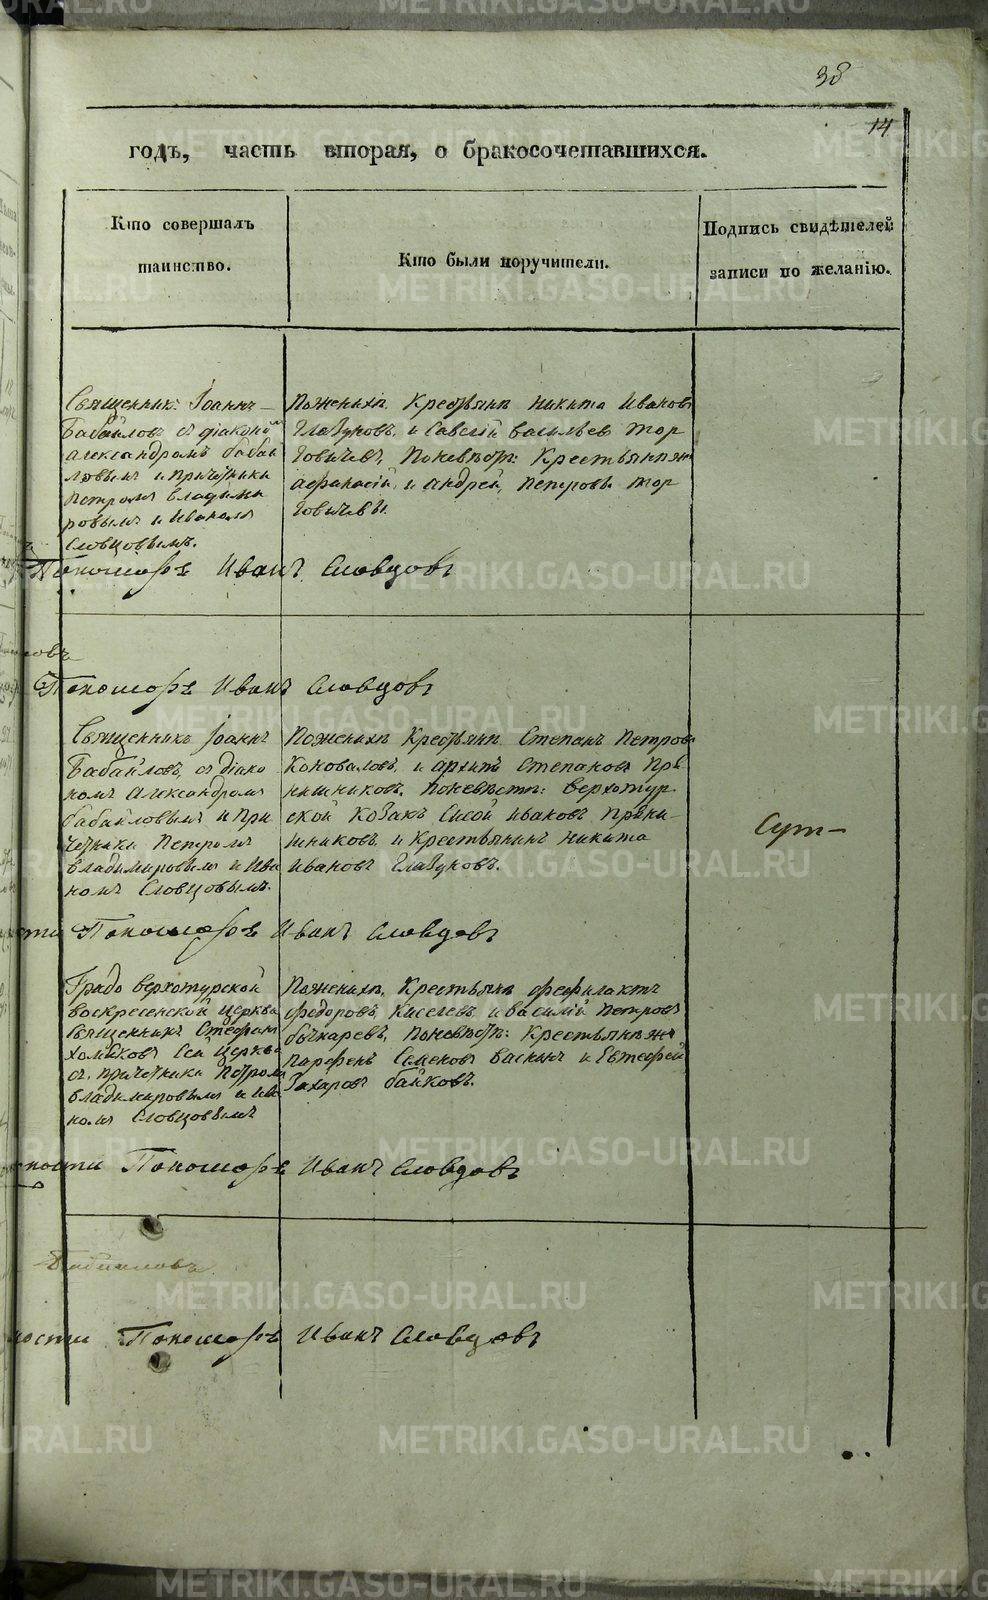 38
14
годъ, часть вторая, о бракосочетавшихся.
Кто совершалъ
таинство.
Кто были поручители.
Подпись свидѣтелей
записи по желанію.
Священникъ Іоаннъ
Бабайловъ съ діакономъ
александромъ бабай
ловымъ и причетники
петромъ владими
ровымъ и иваномъ
словцовымъ.
Поженихѣ, Крестьянѣ никита Ивановъ
Глазуновъ, и Савелій васильевъ тор
говичевъ, Поневѣстѣ: Крестьянѣже
афанасій, и андрей, петровы тор
говичевы.
Пономарь Иванъ Словцовъ
Пономарь Иванъ Словцовъ
Священникъ Іоаннъ
Бабайловъ, съ діако
номъ александромъ
бабайловымъ и при
четники Петромъ
владимировымъ и Ива
номъ Словцовымъ.
Поженихѣ Крестьянѣ Степанъ Петровъ
Коноваловъ, и архипъ Степановъ Пря
нишниковъ, поневѣстѣ: верхотур
ской козакъ Сысой ивановъ пряни
шниковъ, и крестьянинъ никита
ивановъ глазуновъ.
Пономарь Иванъ Словцовъ
Градо верхотурской
воскресенской церкви
Священникъ Стефанъ
Холмковъ Сей церкви
съ причетники Петромъ
владимировымъ и ива
номъ Словцовымъ
Поженихѣ, Крестьянѣ феофилактъ
федоровъ Киселевъ, и василій петровъ
бочкаревъ, поневѣстѣ: Крестьянѣже
парфенъ Семеновъ васкинъ и Евтефей
Захаровъ байковъ.
ности Пономарь Иванъ Словцовъ
Бабайловъ
ности Пономарь Иванъ Словцовъ
METRIKI.GASO-URAL.RU